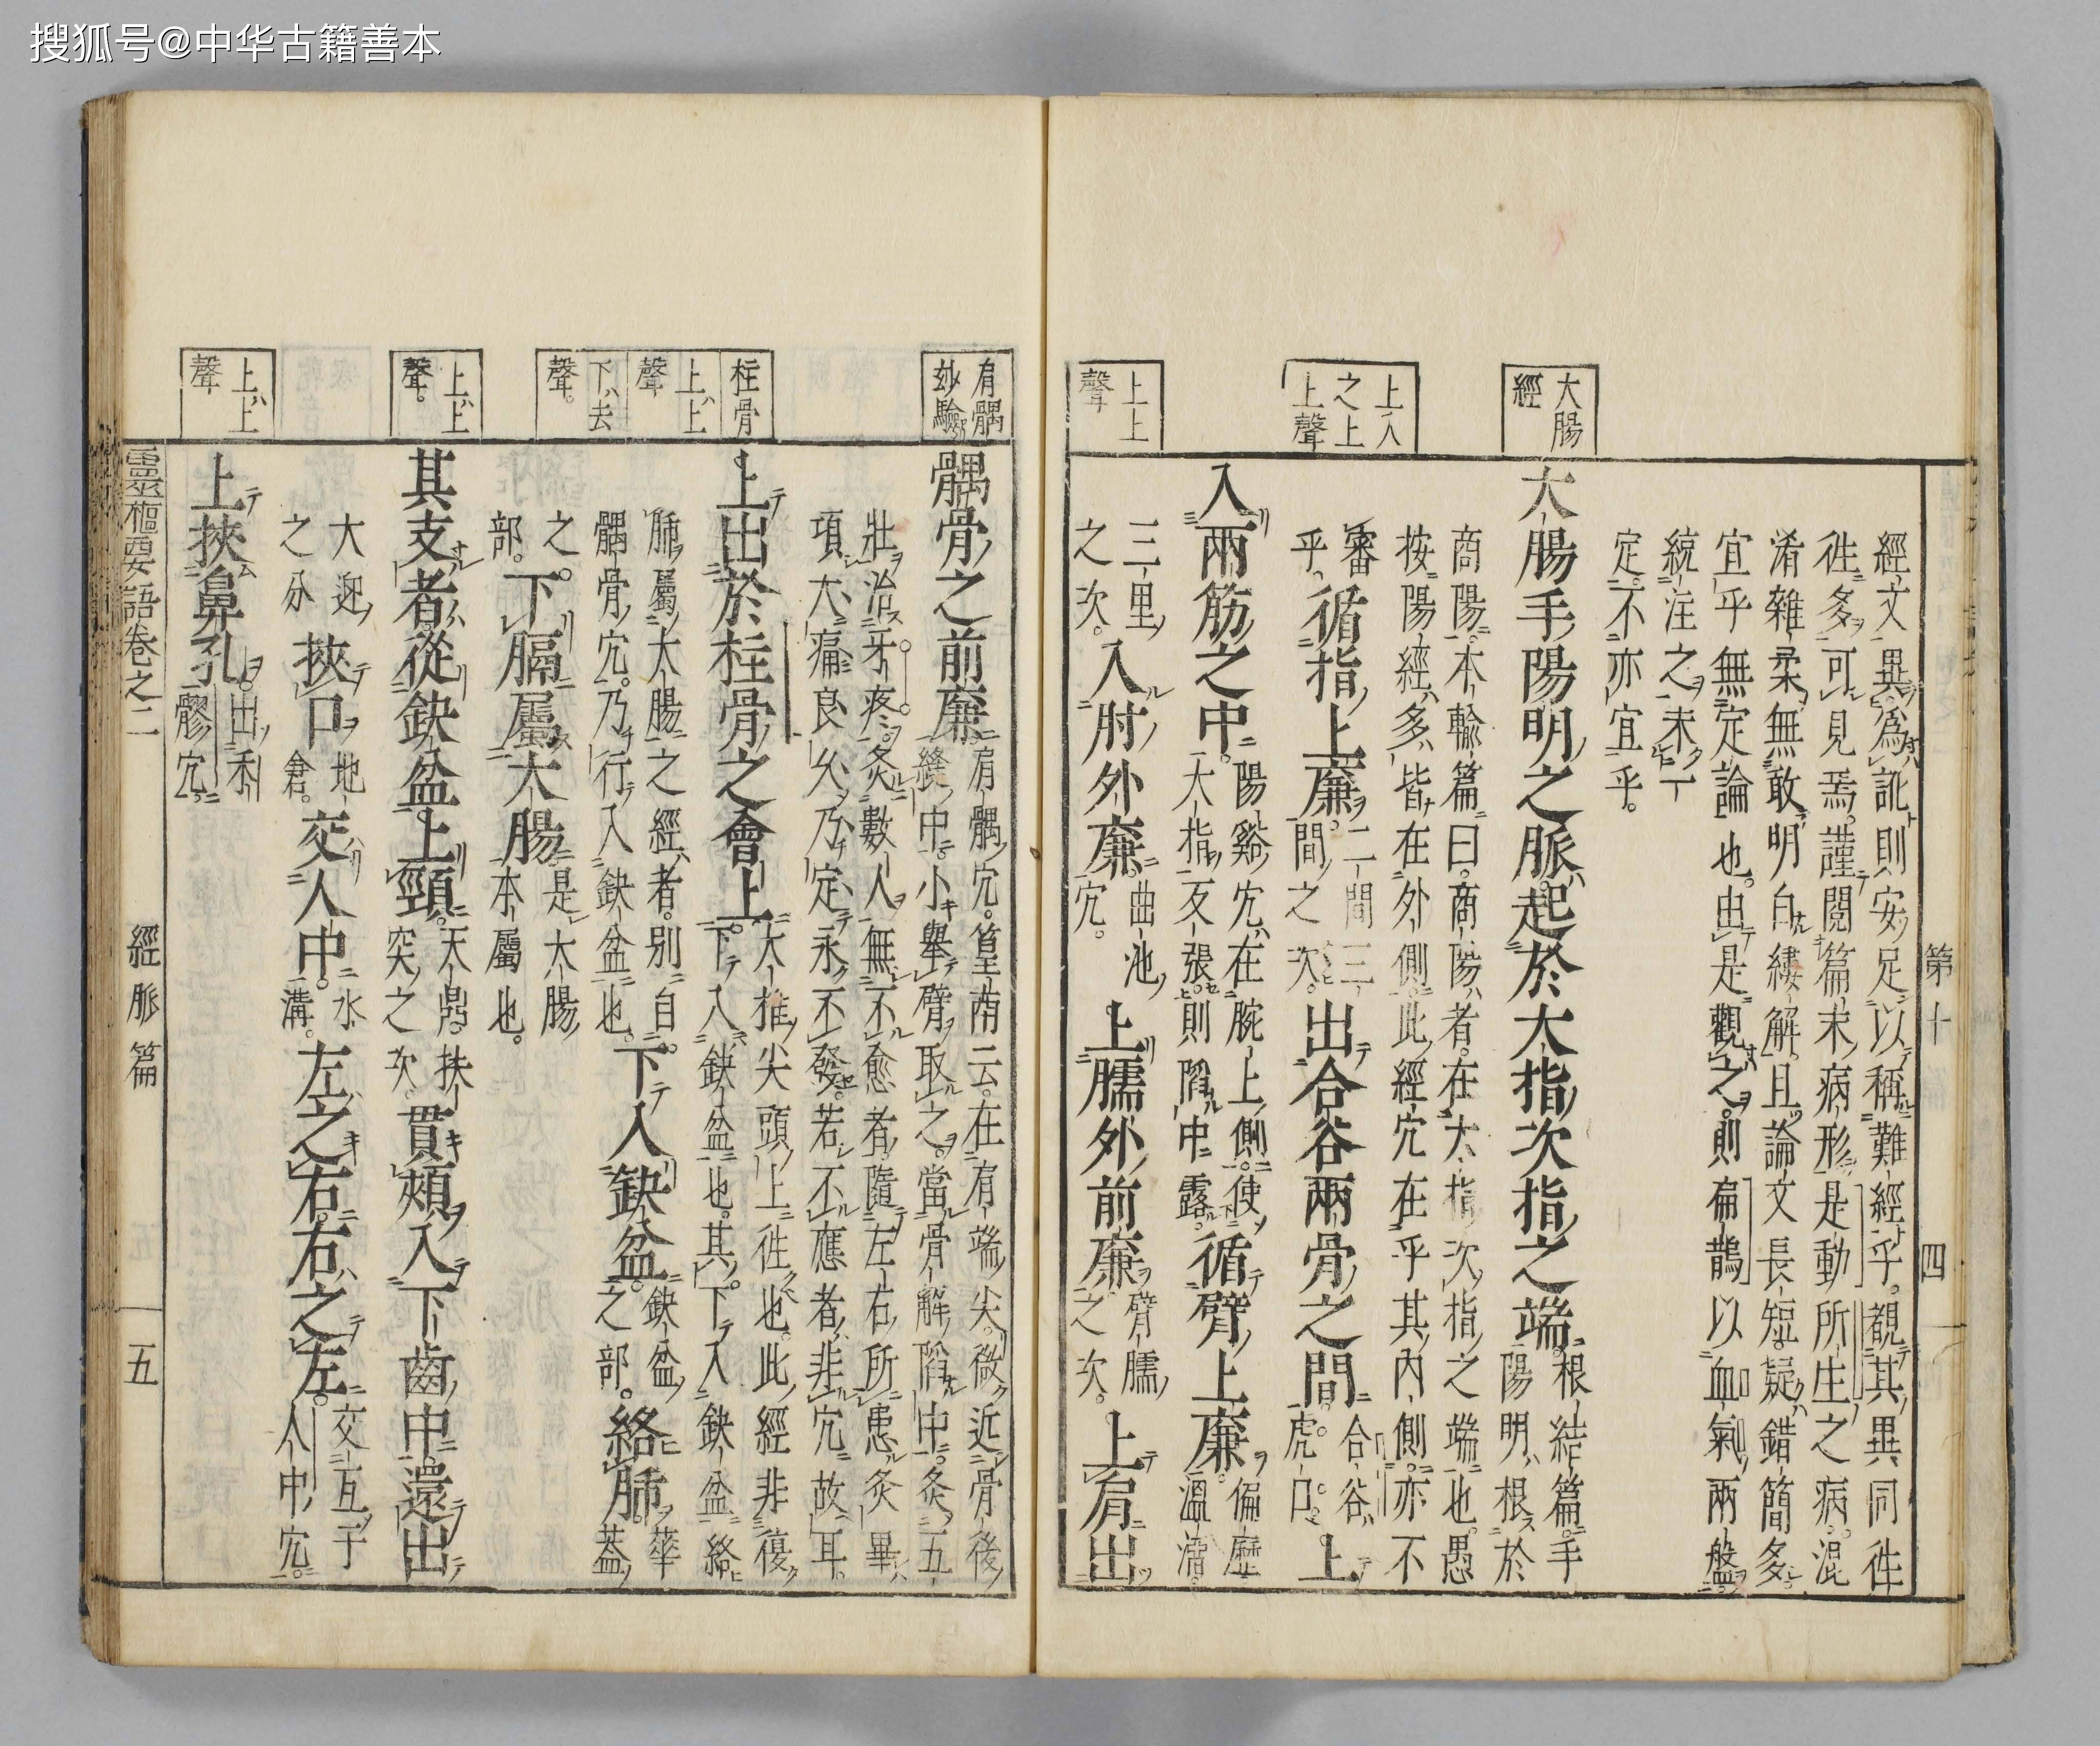 搜狐号@中华古籍善本
第十
四
大腸
經
上入
之上
上聲
上上
聲
經文異爲訛則安足以稱難經乎覩其異同徃
徃多可見焉謹閲篇末病形是動所生之病混
淆雜柔無敢明白縷解且論文長短疑錯簡多
宜乎無定論也由是觀之則扁鵲以血氣兩盤
統注之未丁
定不亦宜乎
大腸手陽明之脈起於大指次指之端
根結篇手
陽明根於
商陽本輸篇曰商陽者在大指次指之端也愚
按陽經多皆在外側此經穴在乎其內側亦不
審
乎
循指上廉
二間三
間之次
出合谷兩骨之間
合谷
虎口
上
入兩筋之中
陽谿穴在腕上側使
大指反張則陷中露
循臂上廉
偏歴
溫溜
三里
之次
入肘外廉
曲池
穴
上臑外前廉
臂臑
之次
上肩出
肩髃
妙驗
柱骨
上上
聲
下去
聲
上上
聲
上上
聲
髃骨之前廉
肩髃穴篁南云在肩端尖微近骨後
縫中小擧臂取之當骨解陷中灸五
壯治牙疼灸數人無不愈者隨左右所患灸畢
項大痛良久乃定永不發若不應者非穴故耳
上出於柱骨之會上
大推尖頭上徃也此經非復
下入缺盆也其下入缺盆絡
肺屬大腸之經者別自
髃骨穴乃行入缺盆也
下入缺盆
缺盆
之部
絡肺
華
蓋
之
部
下膈屬大腸
是大腸
本屬也
其支者從缺盆上頸
天鼎扶
突之次
貫頰入下齒中還出
大迎
之分
挾口
地
倉
交人中
水
溝
左之右右之左
交互于
人中穴
上挾鼻孔
出禾
髎穴
靈樞要語卷之二
經脈篇
五